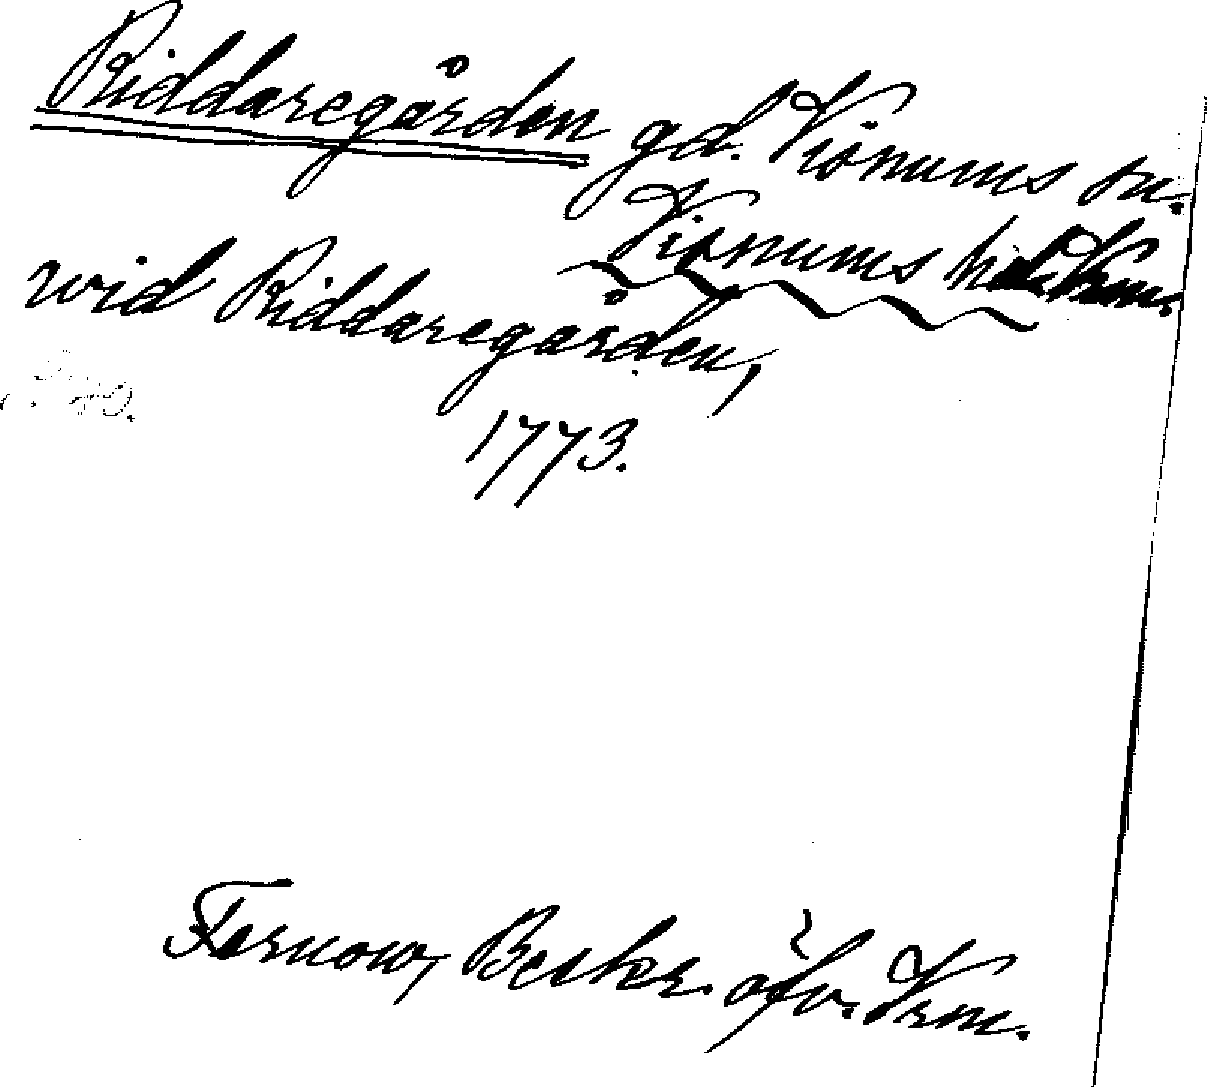 Riddaregården gd. Visnums sn.
Visnums hd. Vrm.
wid Riddaregården,
1773.
Fernow, Beskr. öfv. Vrm.